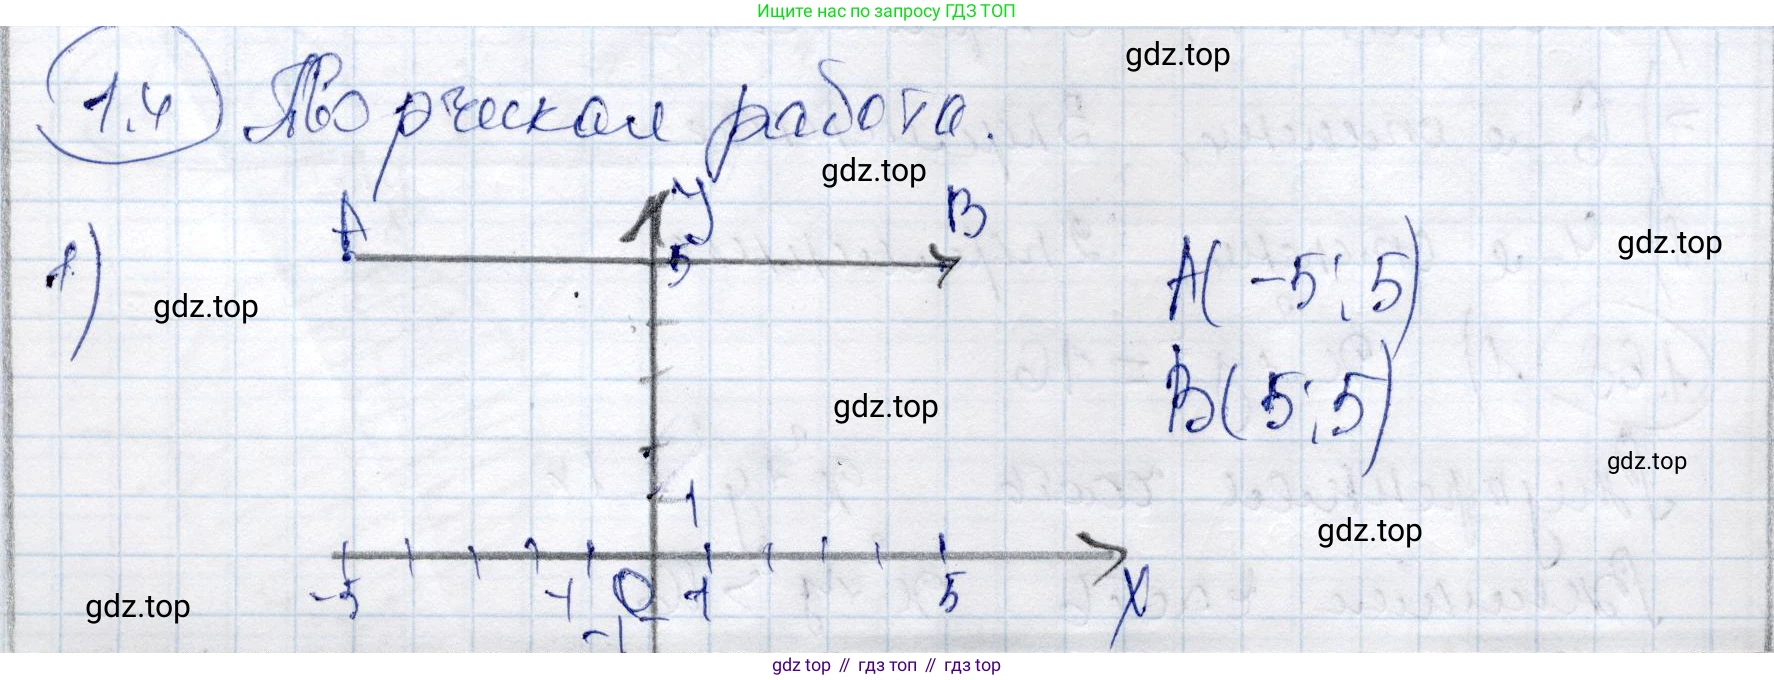 Ищите нас по запросу ГДЗ ТОП
gdz.top
1.4 Творческая работа.
gdz.top
A y B
1) 5 A(-5; 5)
gdz.top
gdz.top
B(5; 5)
gdz.top
gdz.top
1
gdz.top
-5 -1 0 1 5 x
gdz.top
-1
gdz top // гдз топ // гдз top